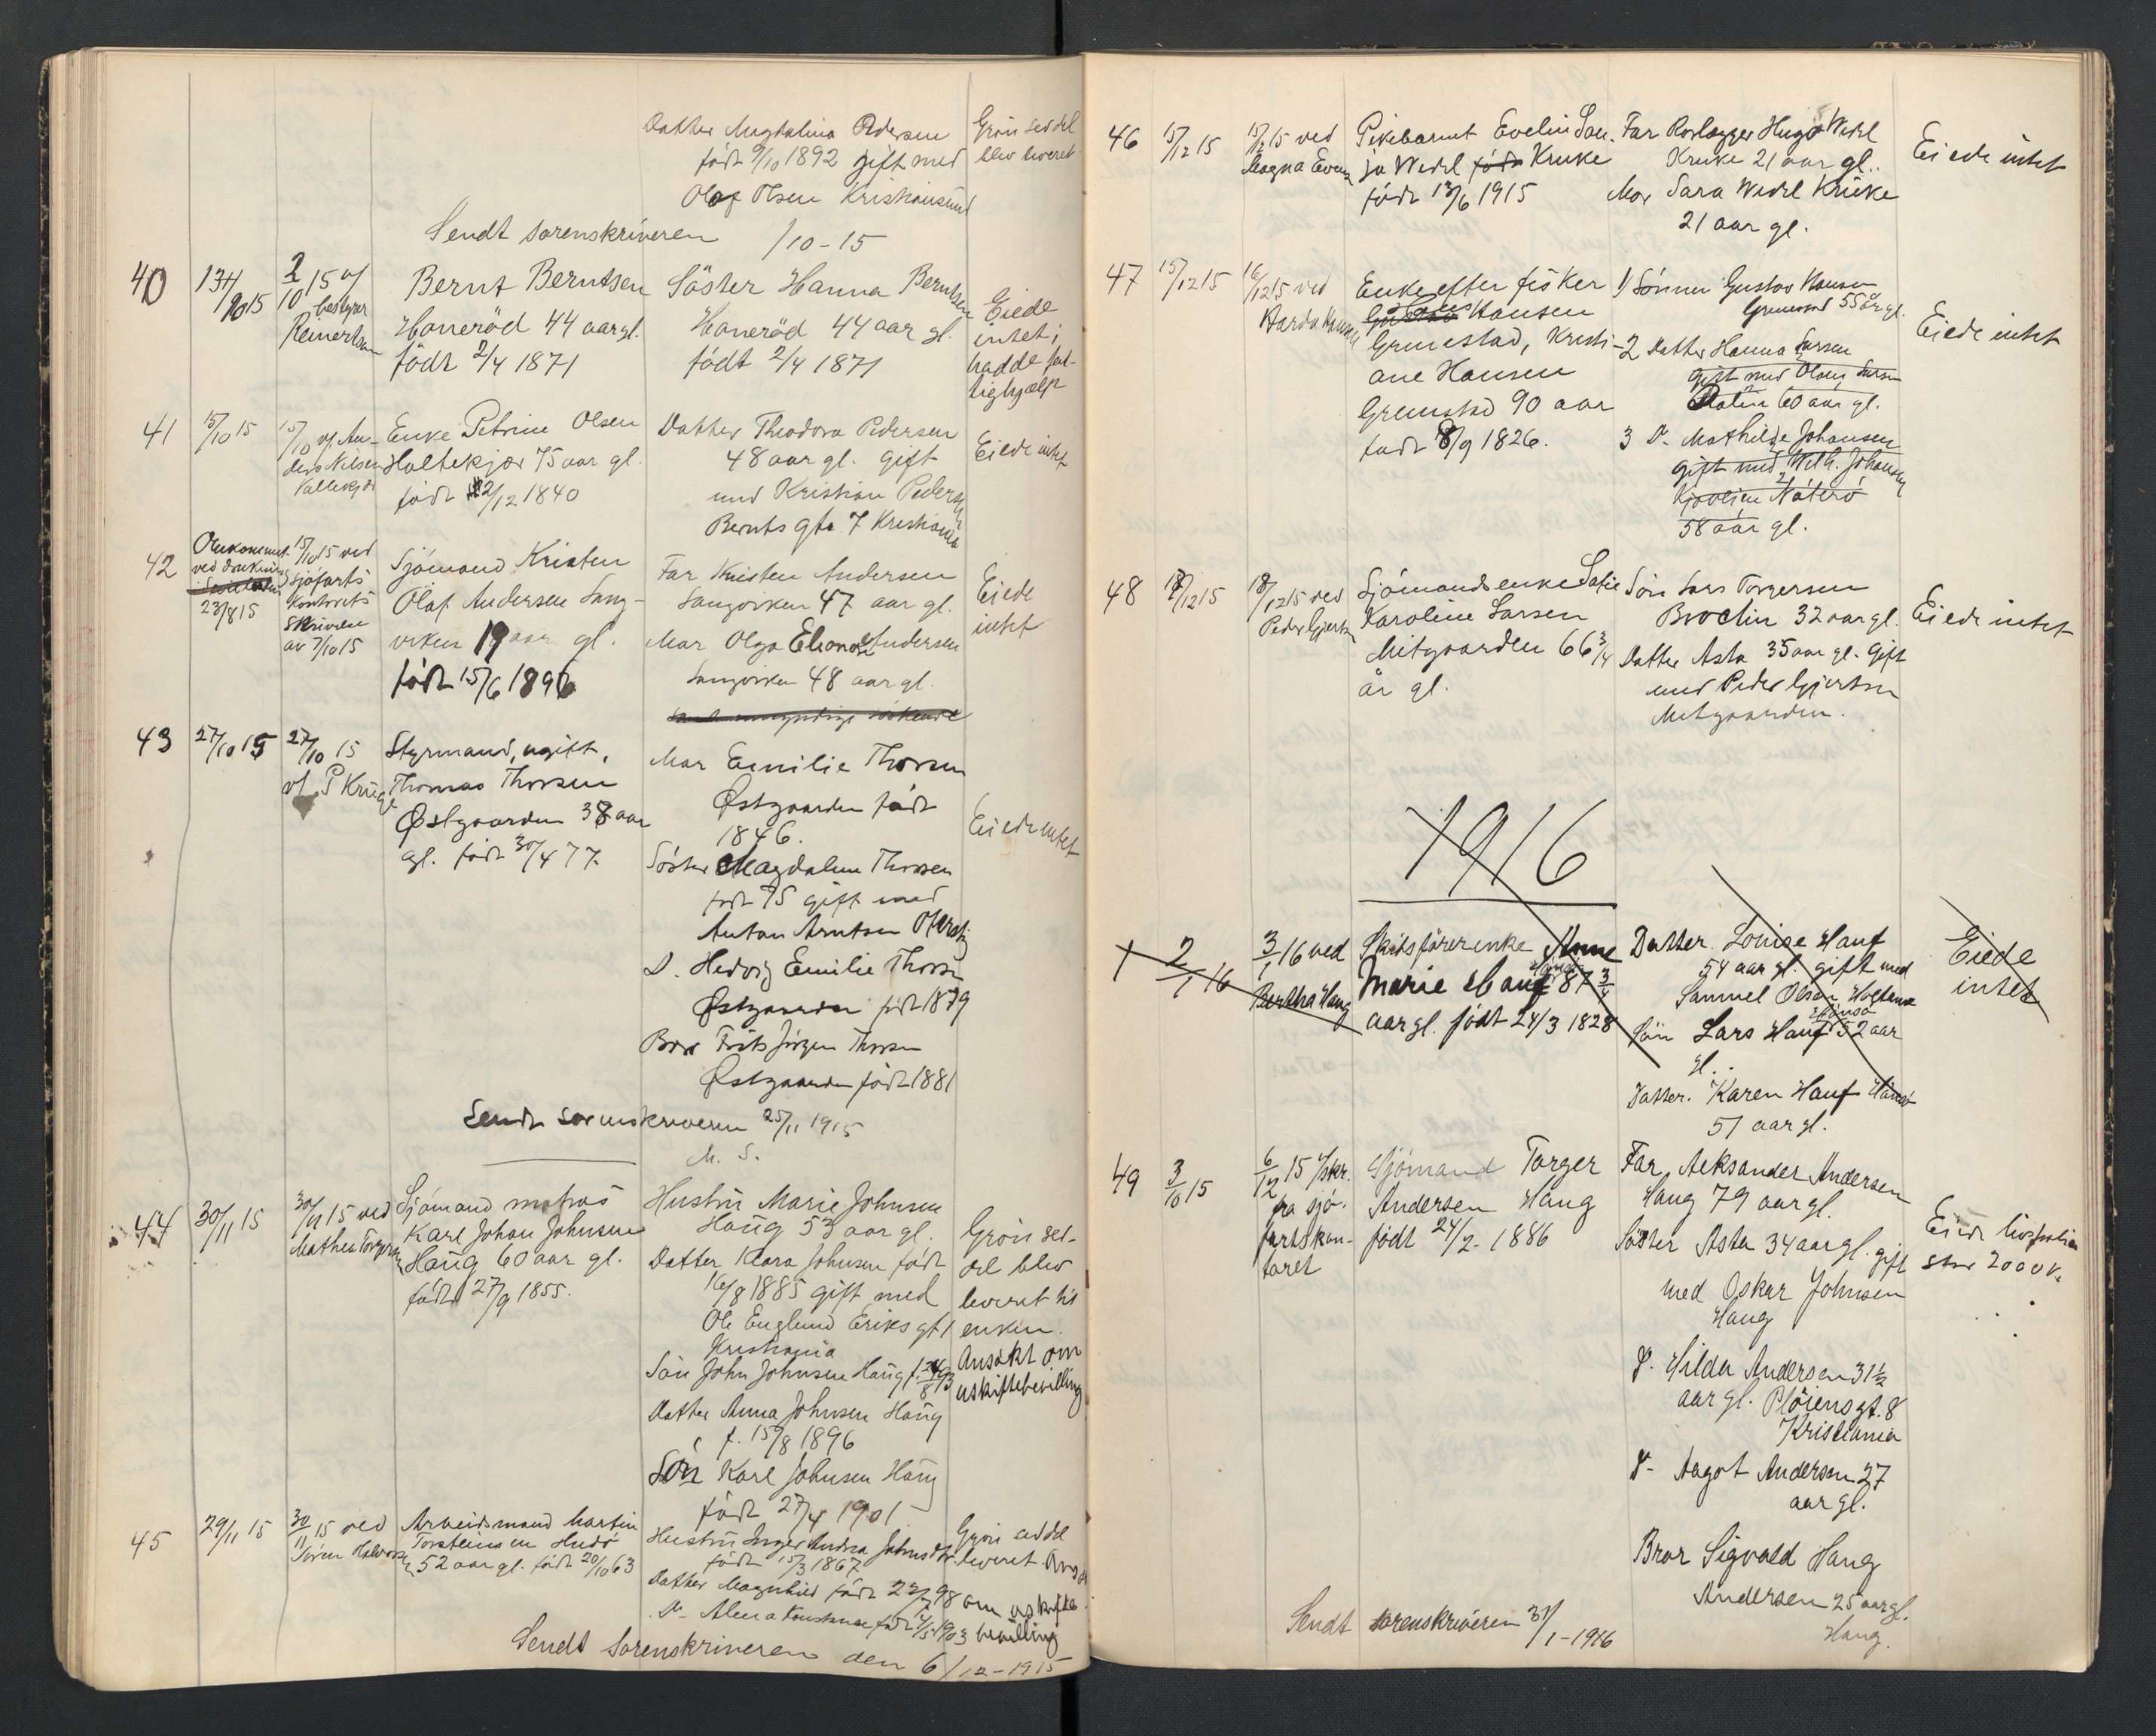 Datter Magdalina Pedersen
født 9/10 1892 gift med
Olaf Olsen Kristiansund
Grøn seddel
blev leveret
Sendt sorenskriveren /10-15
40
134/1015
2/10 15 v/
bestyrer
Reinertsen
Bernt Berntsen
Hanerød 44 aar gl.
født 2/4 1871
Søster Hanna Berntsen
Hanerød 44 aar gl.
født 2/4 1871
Eiede
intet;
hadde fat-
tighjælp
41
15/10 15
15/10 v/ An-
ders Nilsen
Enke Petrine Olsen
Holtekjær 75 aar gl.
født 2/12 1840
Datter Theodora Pedersen
48 aar gl. gift
med Kristian Pedersen
Bernts gt. 7 Kristiania
Eiede intet
42
Omkommet
ved drukning
23/8 15
15/10 15 ved
Sjøfarts
kontorets
Skrivelse
av 7/10 15
Sjømand Kristen
Olaf Andersen Sang-
viken 19 aar gl.
født 15/6 1896
Far Kristen Andersen
Sangviken 47 aar gl.
Mor Olga Elenore Andersen
Sangviken 48 aar gl.
Eiede
intet
43
27/10 15
27/10 15
v/ P Krüge
Styrmand, ugift,
Thomas Thorsen
Østgaarden 38 aar
gl. født 30/4 77.
Mor Emilie Thorsen
Østgaarden født
1846.
Søster Magdalene Thorsen
født 75 gift med
Anton Arntsen
D. Hedvig Emilie Thorsen
Østgaarden født 1879
Bror Frits Jørgen Thorsen
Østgaarden født 1881
Eiede intet
Sendt sorenskriveren 25/11 1915
M. S.
44
30/11 15
30/11 15 ved
Mathea Torgersen
Sjømand matros
Karl Johan Johnsen
Haug 60 aar gl.
født 27/9 1855.
Hustru Marie Johnsen
Haug 53 aar gl.
Datter Klara Johnsen født
16/8 1885 gift med
Ole Englund Eriks gt 1
Kristiania
Søn John Johnsen Haug f. 24/8 93
Datter Anna Johnsen Haug
f. 15/8 1896
Søn Karl Johnsen Haug
født 27/4 1901
Grøn sed-
del blev
leveret til
enken.
Ansøkt om
uskiftebevilling
45
29/11 15
30/11 15 ved
Søren Halvorsen
Arbeidsmand Martin
Torsteinsen Hudø
52 aar gl. født 20/10 63
Hustru Inger Andrea Johnsdtr.
født 15/3 1867
Datter Magnhild født 98
D- Alma Konstanse født 1903
Grøn seddel
leveret. Ansøkt
om uskifte
bevilling
Sendt Sorenskriveren den 6/12-1915
46
15/12 15
15/12 15 ved
Magna Evensen
Pikebarnet Evelin Son-
ja Wedel født Kruke
født 13/6 1915
Far Rørlægger Hugo Wedel
Kruke 21 aar gl.
Mor Sara Wedel Kruke
21 aar gl.
Eiede intet
47
15/12 15
16/12 15 ved
Harda Hansen
Enke efter fisker
Gustav Hansen
Grimestad, Kristi-
ane Hansen
Grimestad 90 aar
født 8/9 1826.
1/ Sønnen Gustav Hansen
Grimestad 55 år gl.
2 Datter Hanna Larsen
gift med Olaus Larsen
60 aar gl.
3 D. Mathilde Johansen
gift med Wilh. Johansen
Nøterø
58 aar gl.
Eiede intet
48
17/12 15
18/12 15 ved
Peder Gjertsen
Sjømandsenke Sofie
Karoline Larsen
Mitgaarden 66 3/4
år gl.
Søn Lars Torgersen
32 aar gl.
Datter Asta 35 aar gl. gift
med Peder Gjertsen
Mitgaarden.
Eiede intet
1916
1
2/1 16
3/1 16 ved
Bertha Haug
Skibsførerenke Anne
Marie Hauf 87 3/4
aar gl. født 24/3 1828
Datter. Louise Hauf
54 aar gl. gift med
Samuel Olsen Holtane
Søn Lars Hauf 52 aar
gl.
Datter. Karen Hauf
51 aar gl.
Eiede
intet
49
3/10 15
6/12 15 v/skr.
fra sjø-
fartskon-
toret
Sjømand Torger
Andersen Haug
født 24/2. 1886
Far, Aleksander Andersen
Haug 79 aar gl.
Søster Asta 34 aar gl. gift
med Oskar Johnsen
Haug
D. Hilda Andersen 31 1/2
aar gl. Pløiensgt. 8
Kristiania
D- Aagot Andersen 27
aar gl.
Bror Sigvald Haug
Andersen 25 aar gl.
Haug.
Eiede livspolise
stor 2000 k.
Sendt sorenskriveren 31/1-1916